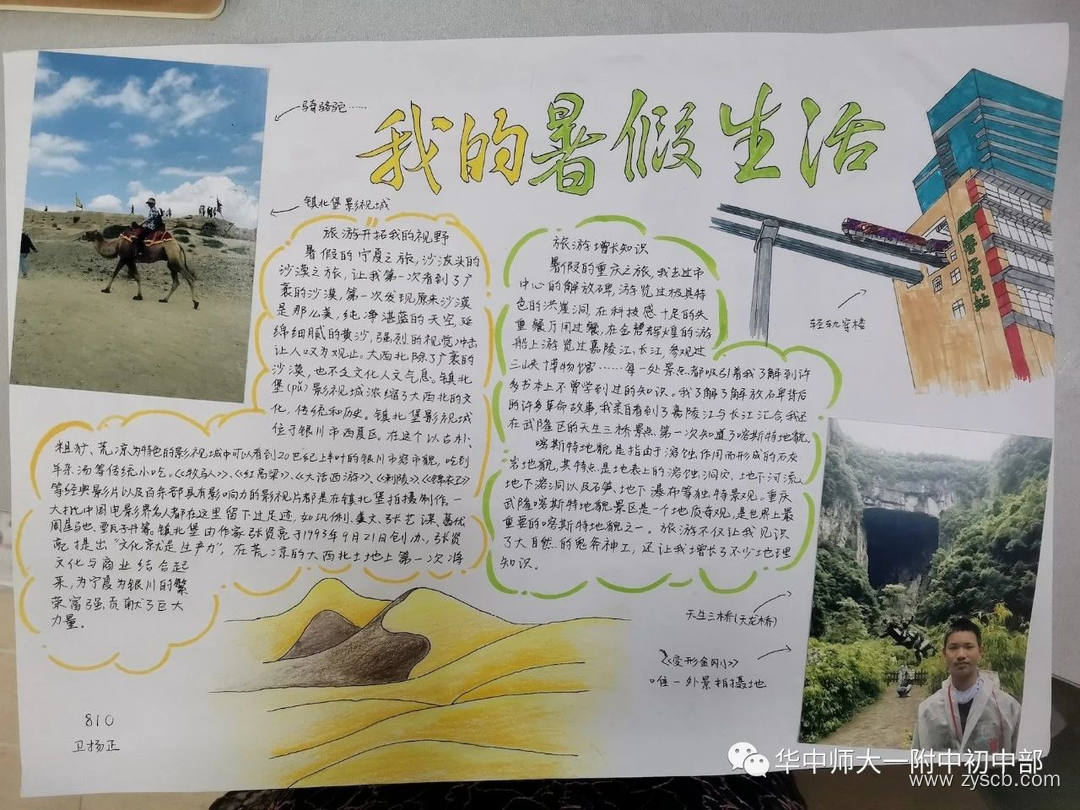 我的暑假生活
骑骆驼……
镇北堡影视城
旅游开拓我的视野
暑假的宁夏之旅，沙波头的
沙漠之旅，让我第一次看到了广
袤的沙漠，第一次发现原来沙漠
是那么美，纯净湛蓝的天空，延
绵细腻的黄沙，强烈的视觉冲击
让人叹为观止。大西北除了广袤的
沙漠，也不乏文化人文气息。镇北
堡(pù)影视城浓缩了大西北的文
化，传统和历史。镇北堡影视城
位于银川市西夏区，在这个以古朴、
粗犷、荒凉为特色的影视城中可以看到20世纪上半叶的银川市府市貌，吃到
羊杂汤等传统小吃。《牧马人》、《红高粱》、《大话西游》、《刺陵》《锦衣卫》
等经典影片以及百余部具有影响力的影视片都是在镇北堡拍摄制作。一
大批中国电影界名人都在这里留下过足迹，如巩俐、姜文、张艺谋、葛优
周星驰、甄子丹等。镇北堡由作家张贤亮于1993年9月21日创办，张贤
亮提出“文化就是生产力”，在荒凉的大西北土地上第一次将
文化与商业结合起
来，为宁夏为银川的繁
荣富强贡献了巨大
力量。
旅游增长知识
暑假的重庆之旅，我去过市
中心的解放碑，游览过极具特
色的洪崖洞，在科技感十足的失
重餐厅用过餐，在金碧辉煌的游
船上游览过嘉陵江、长江，参观过
三峡博物馆……每一处景点都吸引着我了解到许
多书本上不曾学到过的知识。我了解了解放石卑背后
的许多革命故事，我亲自看到了嘉陵江与长江汇合，我还
在武隆区的天生三桥景点，第一次知道了喀斯特地貌。
喀斯特地貌，是指由于溶蚀作用而形成的石灰
岩地貌，其特点是地表上的溶蚀洞穴，地下河流，
地下溶洞以及石笋、地下瀑布等独特景观。重庆
武隆喀斯特地貌景区是一个地质奇观，是世界上最
重要的喀斯特地貌之一。旅游不仅让我见识
了大自然的鬼斧神工，还让我增长了不少地理
知识。
李子坝站
轻轨穿楼
天生三桥(天龙桥)
《变形金刚》
唯一外景拍摄地
810
卫杨正
华中师大一附中初中部
www.zyscb.com